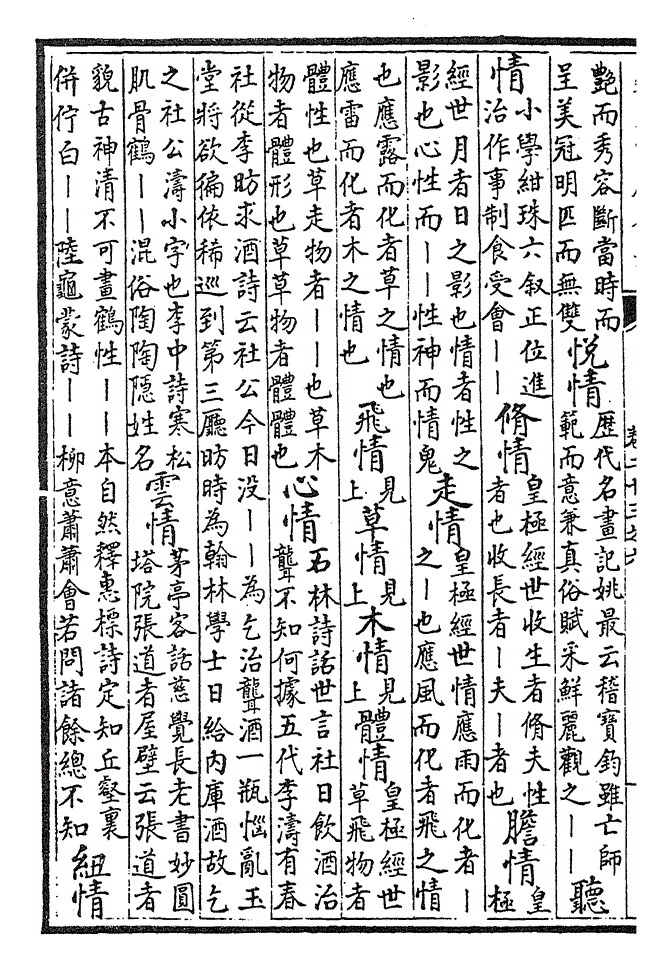 艷而秀容斷當時而呈美冠明匹而無雙悦情歷代名畫記姚最云稽寶鈞雖亡師範而意兼真俗賦采鮮麗觀之丨丨聽
情小學紺珠六叙正位進治作事制食受會丨丨脩情皇極經世收生者脩夫性者也收長者丨夫丨者也膽情皇極
經世月者日之影也情者性之影也心性而丨丨性神而情鬼走情皇極經世情應雨而化者丨之丨也應風而化者飛之情
也應露而化者草之情也應雷而化者木之情也飛情見上草情見上木情見上體情皇極經世草飛物者
體性也草走物者丨丨也草木物者體形也草草物者體體也心情石林詩話世言社日飲酒治聾不知何據五代李濤有春
社從李昉求酒詩云社公今日没丨丨為乞治聾酒一瓶惱亂玉堂將欲徧依稀巡到第三廳昉時為翰林學士日給内庫酒故乞
之社公濤小字也李中詩寒松肌骨鶴丨丨混俗陶陶隱姓名雲情茅亭客話慈覺長老書妙圓塔院張道者屋壁云張道者
貌古神清不可畫鶴性丨丨本自然釋惠標詩定知丘壑裏併佇白丨丨陸龜蒙詩丨丨柳意蕭蕭會若問諸餘總不知紐情